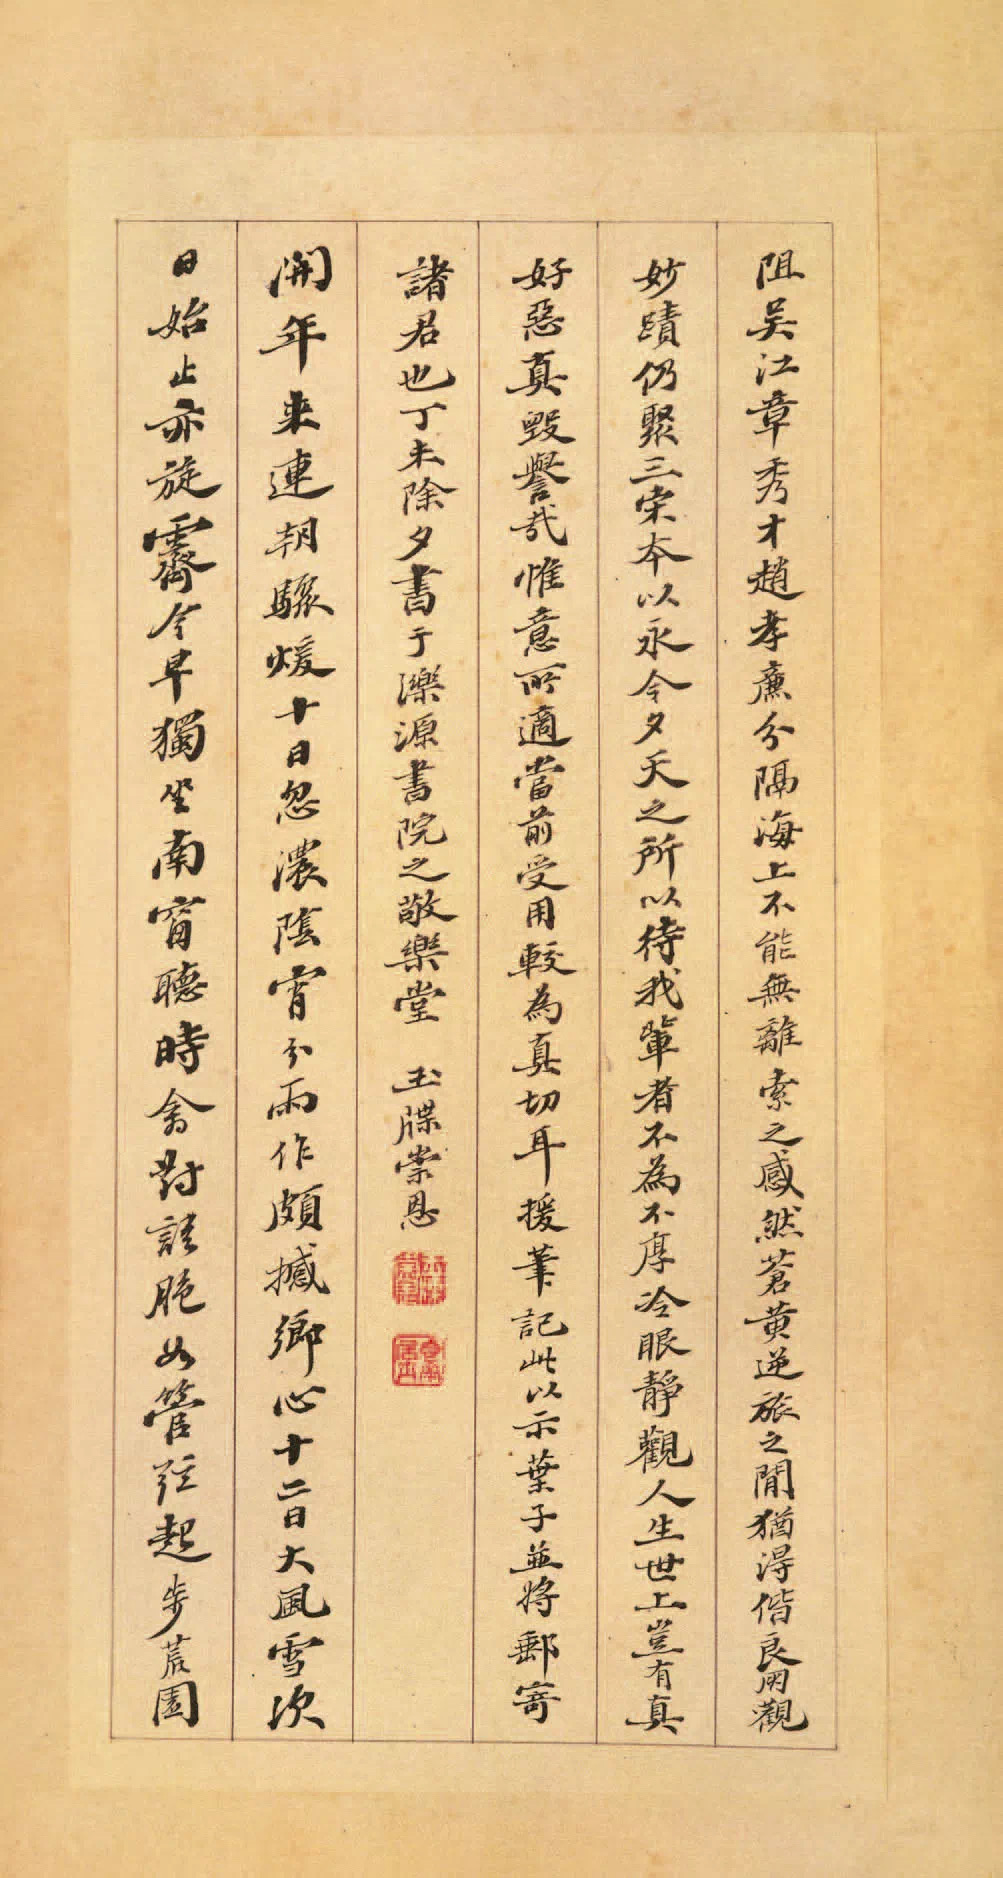 阻吴江章秀才趙孝廉分隔海上不能無離索之感然蒼黄逆旅之閒猶得偕良朋觀
妙蹟仍聚三宋本以永今夕天之所以待我輩者不為不厚冷眼靜觀人生世上豈有真
好惡真毀譽哉惟意所適當前受用較為真切耳援筆記此以示葉子並將郵寄
諸君也丁未除夕書于濼源書院之敬樂堂　玉牒崇恩
開年来連朝驟煖十日忽濃陰宵分雨作頗撼鄉心十二日大風雪次
日始止亦旋霽今早獨坐南窗聽時禽對語脆如管弦起步荒園